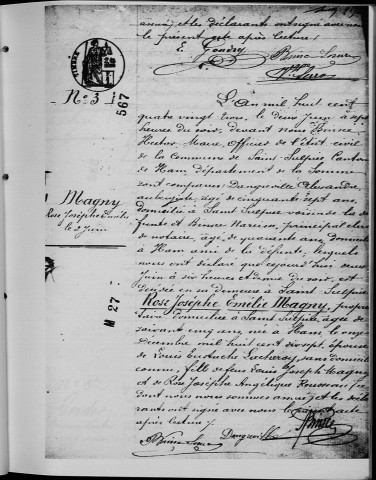 annué, et les déclarants ont signé avec nous
le présent acte après lecture.
N° 3
567
Magny
Rose Josèphe Emilie
le 2 Juin
M 27
L'an mil huit cent
quatre vingt trois, le deux Juin à sept
heures du soir, devant nous Binse
Hector, Maire, Officier de l'état civil
de la Commune de Saint Sulpice Canton
de Ham, département de la Somme
sont comparus: Dangeville Alexandre,
aubergiste, âgé de cinquante sept ans,
domicilié à Saint Sulpice voisin de la dé
funte et Binse Narcisse, principal clerc
de notaire, âgé, de quarante ans, domicilié
à Ham ami de la défunte; lesquels
nous ont déclaré que
Juin à six heures et demie du soir, est
décédée en sa demeure à Saint Sulpice
Rose Josèphe Emilie Magny, proprié
taire domiciliée à Saint Sulpice, âgée de
soixante cinq ans, née à Ham le onze
Décembre mil huit cent dix sept, épouse
de Louis Eustache
comme, fille de feus Louis Joseph Magny
et de Rose Josèphe Angélique
dont nous nous sommes assuré et les décla
rants ont signé avec nous le présent acte
après lecture.
Dangeville
Binse